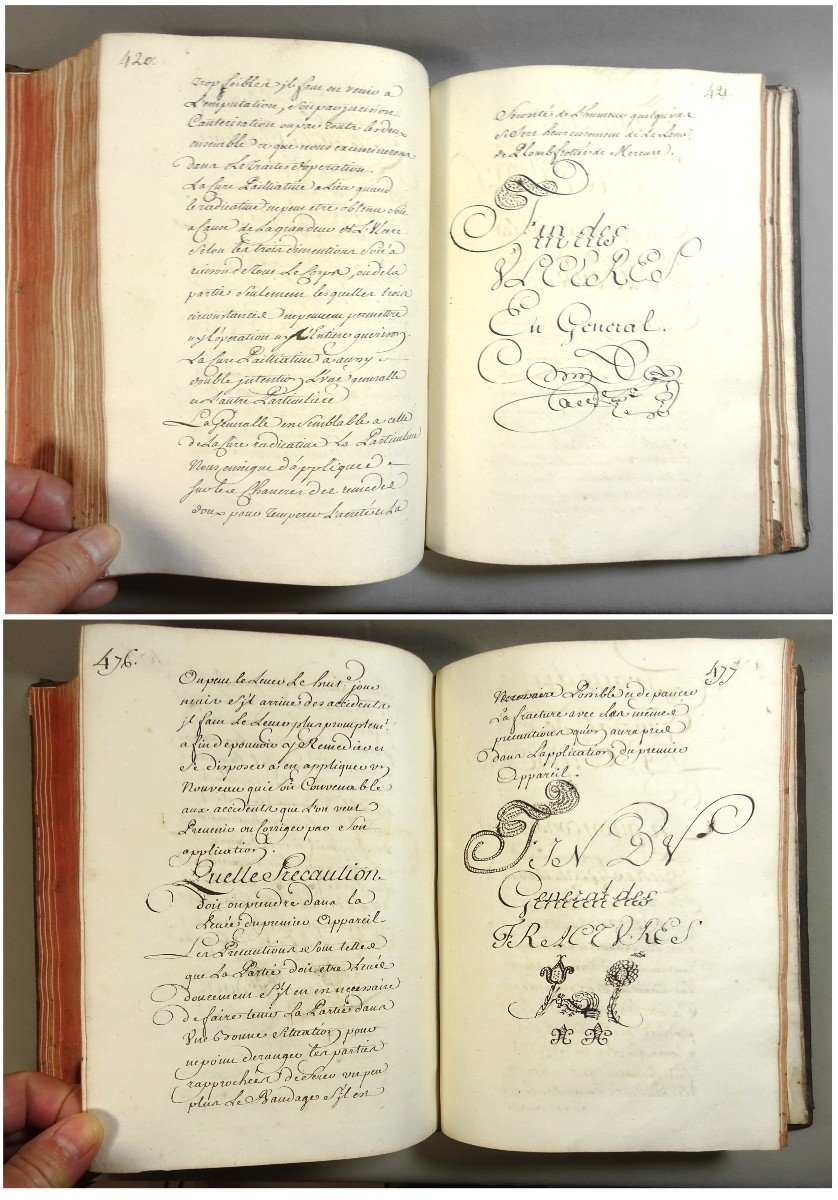 420.
trop foible, il faut en venir a
L'emputation, soit par incision
Cauterisation ou par toutte les deux
ensemble ce que nous examinerons
dans Le Traité d'operation.
La Cure Palliative a Lieu quand
le radicative ne peut etre obtenue soit
a Cause de La grandeur et
selon les trois dimentions soit a
raison de tout Le Corps, ou de la
partie seulement lesquelles trois
circonstances ne peuvent permettre
ny l'operation ny L'Entiere guerison.
La Cure Palliative a aussy
double jntention L'une generalle
et L'autre Particuliere
La Generalle est semblable a celle
de La Cure radicative La Particuliere
Nous enseigne d'appliquer
sur les Chancres des remedes
doux pour temperer L'acreté et La
421
de L'humeur quelqu'uns
se sert heureusement de La Lame
de Plomb frottée de Mercure.
Fin des
VLCERES
En General.
476.
On peut le Lever Le huit.e jour
mais s'jl arrive des accidents
jl faut Le Lever plus promptem.t
afin d'y Remedier et
se disposer a en appliquer vn
Nouveau qui soit Convenable
aux accidents que L'on veut
Prevenir ou Corriger par son
application.
Quelle Precaution.
doit on prendre dans la
Levée du premier Appareil.
Les Precautions sont telles
que La Partie doit etre Levée
doucement s'jl en est necessaire
de faire tenir La Partie dans
Vne bonne situation pour
ne point deranger les parties
rapprochées & de serer vn peu
plus Le Bandage s'jl est
477
Necessaire Possible et de pancer
La fracture avec Les mêmes
précautions qu'on aura prise
dans L'application du premier
Appareil.
FIN DV
General des
FRACTVRES